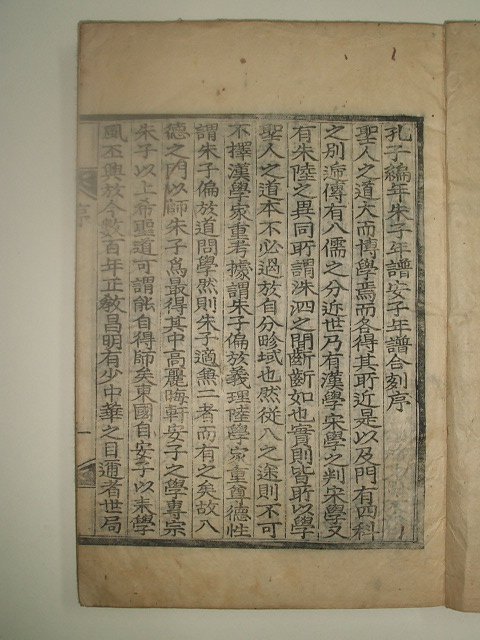 孔子編年朱子年譜安子年譜合刻序
聖人之道大而博學焉而各得其所近是以及門有四科
之別遞傳有八儒之分近世乃有漢學宋學之判宋學又
有朱陸之異同所謂洙泗之間斷斷如也實則皆所以學
聖人之道本不必過於自分畛域也然従入之途則不可
不擇漢學家重考據謂朱子偏於義理陸學家重尊德性
謂朱子偏於道問學然則朱子適兼二者而有之矣故入
德之門以師朱子爲最得其中高麗晦軒安子之學專宗
朱子以上希聖道可謂能自得師矣東國自安子以来學
風丕興於今數百年正敎昌明有少中華之目邇者世局
序
一